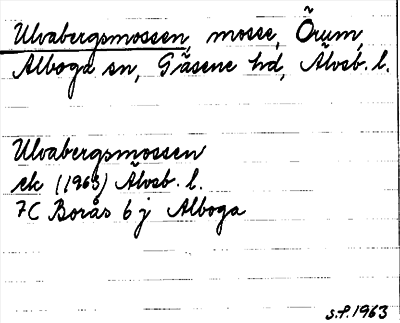 Ulvabergsmossen, mosse, Örum,
Alboga sn, Gäsene hd, Älvsb. l.
Ulvabergsmossen
ek (1963) Älvsb. l.
7C Borås 6 j Alboga
s.f. 1963